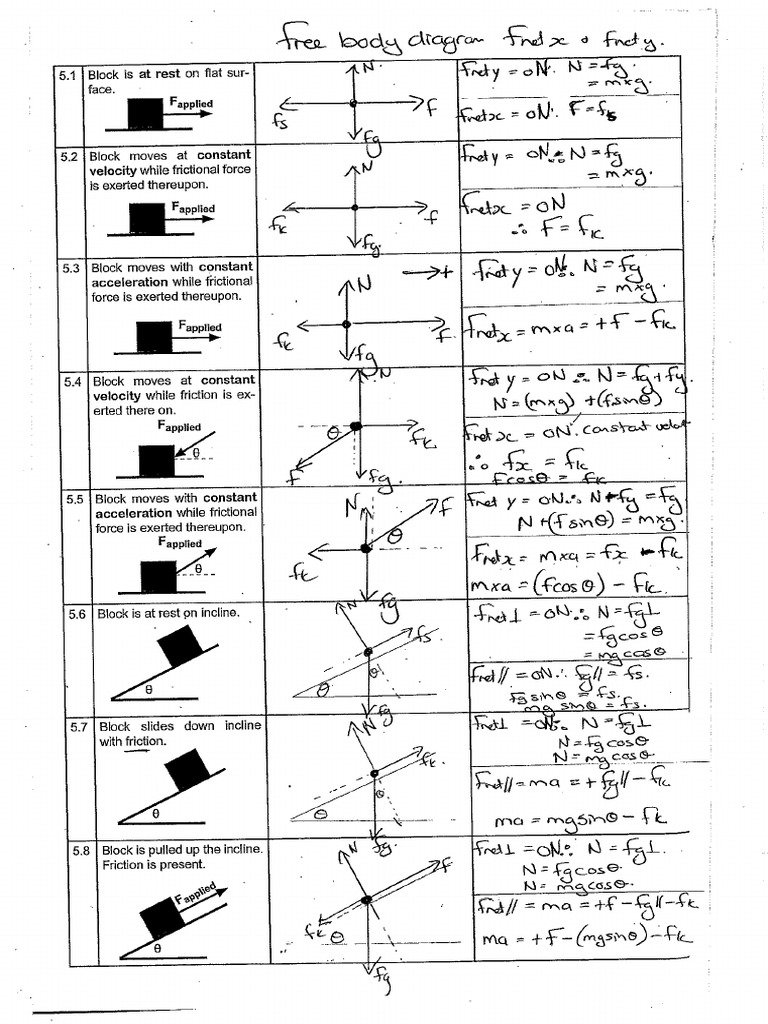 free body diagram Fnetx & Fnety.
5.1 Block is at rest on flat sur-
face.
Fapplied
N.
fs
f
fg
Fnety = 0N. N = fg.
= m×g.
Fnetx = 0N. F = fs
5.2 Block moves at constant
velocity while frictional force
is exerted thereupon.
Fapplied
N
fk
f
fg.
Fnety = 0N ∴ N = fg
= m×g.
Fnetx = 0N
∴ F = fk
5.3 Block moves with constant
acceleration while frictional
force is exerted thereupon.
Fapplied
N
→+
fk
f
fg
Fnety = 0N ∴ N = fg
= m×g.
Fnetx = m×a = +F - fk
5.4 Block moves at constant
velocity while friction is ex-
erted there on.
Fapplied
θ
N
θ
fk
F
fg.
Fnet y = 0N ∴ N = fg + fy.
N = (m×g) + (fsinθ)
Fnetx = 0N. constant velo
∴ fx = fk
fcosθ = fk
5.5 Block moves with constant
acceleration while frictional
force is exerted thereupon.
Fapplied
θ
N
f
θ
fk
fg
Fnet y = 0N ∴ N + fy = fg
N + (f sinθ) = m×g.
Fnetx = m×a = fx - fk
m×a = (fcosθ) - fk.
5.6 Block is at rest on incline.
θ
N
fs
θ
θ
fg
Fnet⊥ = 0N ∴ N = fg⊥
= fgcosθ
= mgcosθ
Fnet// = 0N ∴ fg// = fs.
fgsinθ = fs.
mg sinθ = fs.
5.7 Block slides down incline
with friction.
θ
N
fk
θ
θ
fg.
Fnet⊥ = 0N ∴ N = fg⊥
N = fgcosθ
N = mgcosθ
Fnet// = ma = +fg// - fk
ma = mgsinθ - fk
5.8 Block is pulled up the incline.
Friction is present.
Fapplied
θ
N
f
fk
θ
fg
Fnet⊥ = 0N ∴ N = fg⊥.
N = fgcosθ
N = mgcosθ.
Fnet// = ma = +f - fg// - fk
ma = +F - (mgsinθ) - fk